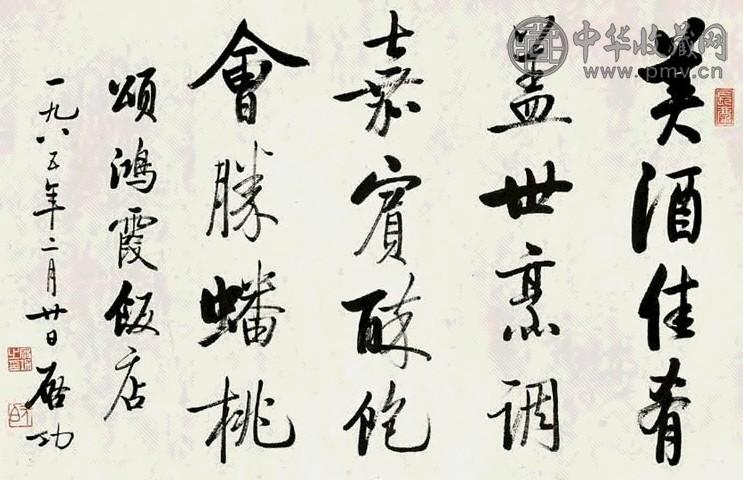 美酒佳肴
盖世烹调
嘉賓酥飽
會勝蟠桃
頌鴻霞飯店
一九八五年二月廿日 启功
中华收藏网
www.pmv.cn